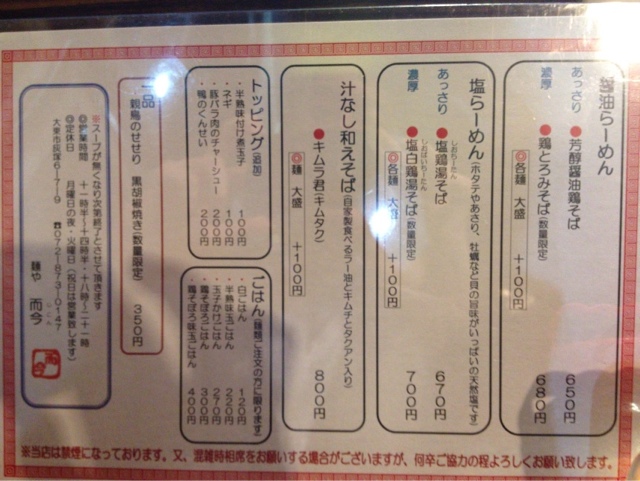 醤油らーめん
あっさり ●芳醇醤油鶏そば 650円
濃厚 ●鶏とろみそば(数量限定) 680円
◎各麺 大盛 +100円
塩らーめん(ホタテやあさり、牡蠣など貝の旨味がいっぱいの天然塩です)
あっさり ●塩鶏湯そば 670円
しおちーたん
濃厚 ●塩白鶏湯そば(数量限定) 700円
しおぱいちーたん
◎各麺 大盛 +100円
汁なし和えそば(自家製食べるラー油とキムチとタクアン入り)
●キムラ君(キムタク) 800円
◎麺 大盛 +100円
トッピング(追加)
・半熟味付け煮玉子 100円
・ネギ 100円
・豚バラ肉のチャーシュー 200円
・鴨のくんせい 200円
ごはん(麺類ご注文の方に限ります)
・白ごはん 120円
・半熟味玉ごはん 220円
・玉子かけごはん 270円
・鶏そぼろごはん 300円
・鶏そぼろ味玉ごはん 400円
一品
親鳥のせせり 黒胡椒焼き(数量限定) 350円
※スープが無くなり次第終了とさせて頂きます
◎営業時間 十一時半~十四時半・十八時~二十一時
◎定休日 月曜日の夜・火曜日(祝日は営業致します)
大東市荻塚6-7-9 ☎072-873-0147
麺や 而今
じこん
※当店は禁煙になっております。又、混雑時相席をお願いする場合がございますが、何卒ご協力の程よろしくお願い致します。